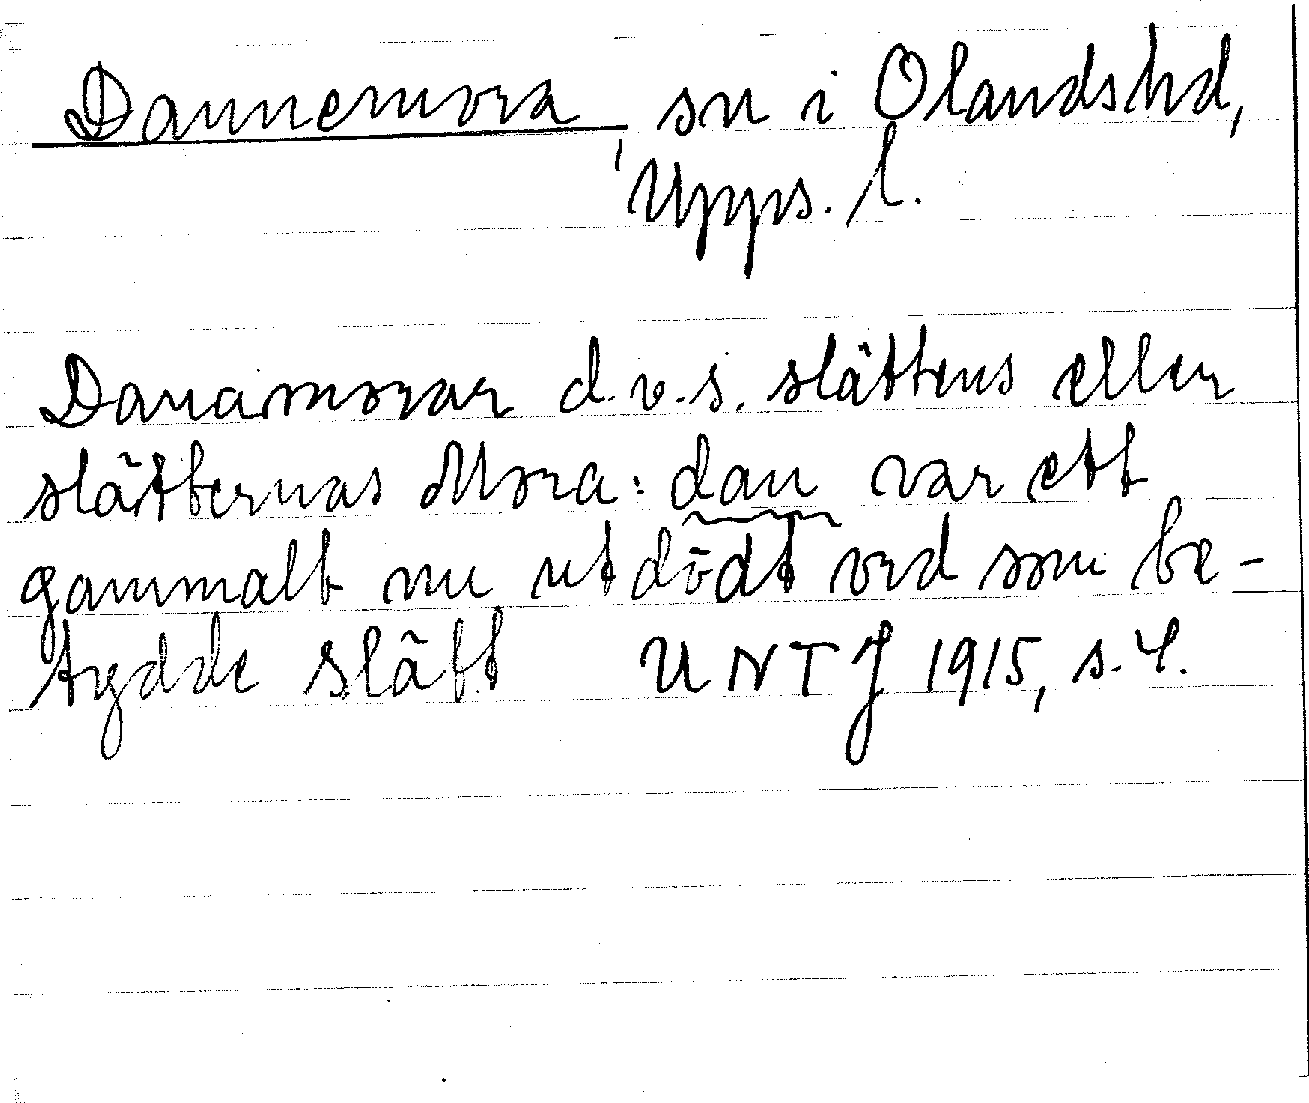 Dannemora, sn i Olandshd,
Upps. l.
Danamorar d.v.s. slättens eller
slätternas Mora: dan var ett
gammalt nu utdödt ord som be-
tydde slätt UNTJ 1915, s. 4.